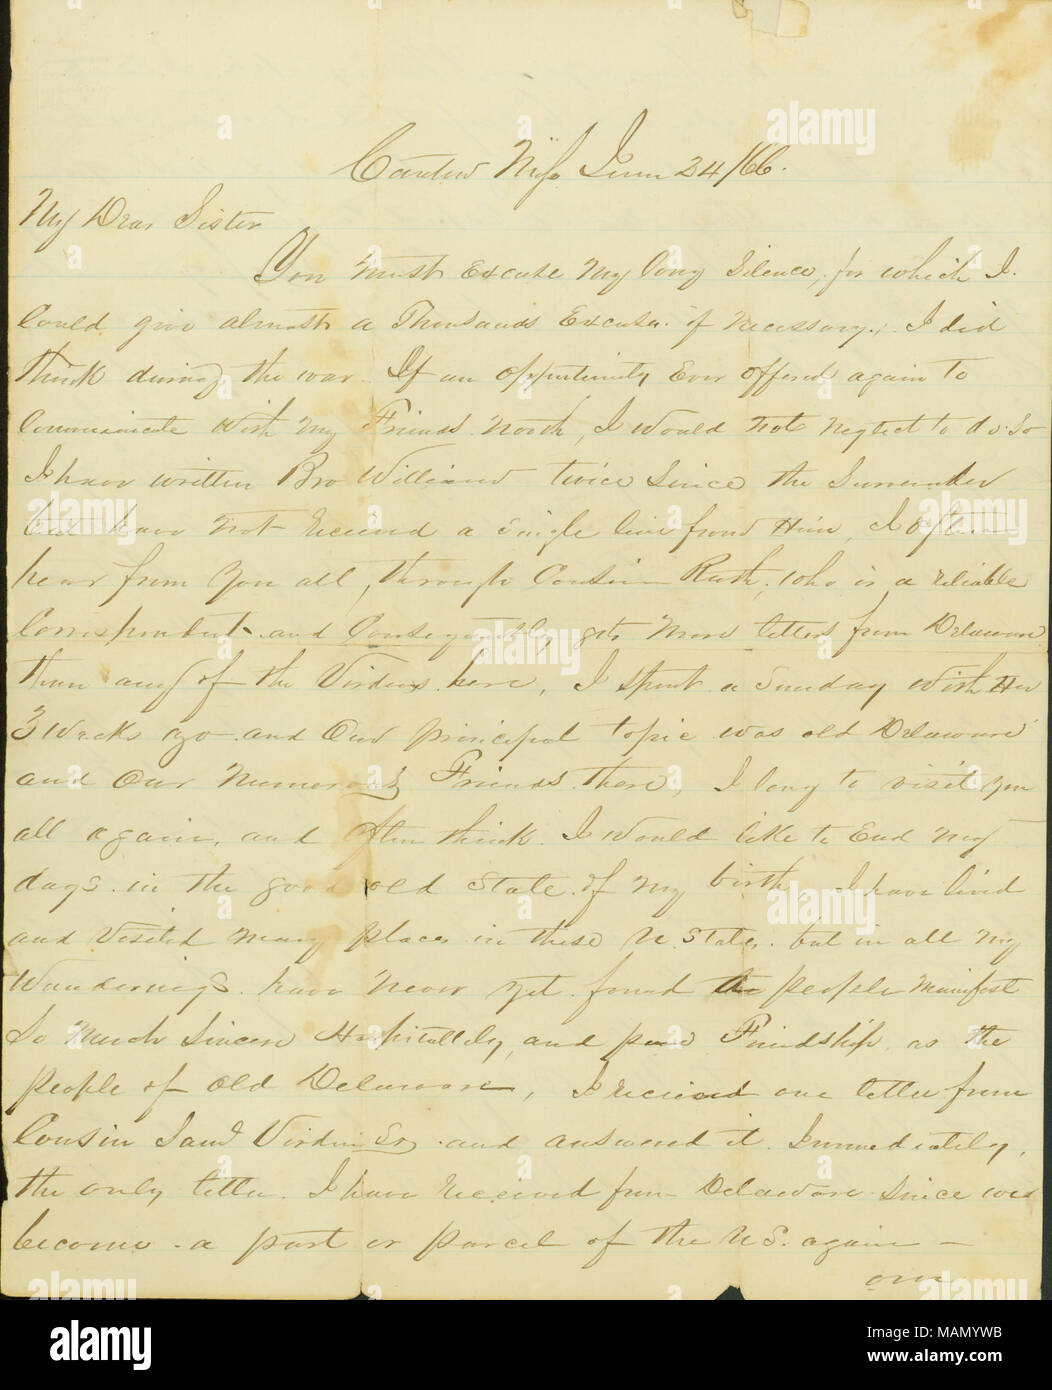 Canton Miss June 24/66.
My Dear Sister
You must Excuse My long Silence, for which I.
Could give almost a Thousands Excuses if necessary. I did
think during the war. If an opportunity Ever offered again to
Communicate with My Friends North, I would not neglect to do So
I have written Bro William twice Since the Surrender
but have not Received a single line from Him, I often
hear from you all, through Cousin Ruth, who is a reliable
Correspondent and Consequently gets More letters from Delaware
than any of the Virdens here, I spent a Sunday with Her
3 Weeks ago and Our principal topic was old Delaware
and Our Numerous Friends there, I long to visit you
all again, and often think I would like to End My
days in the good old State of My birth, I have lived
and Visited Many places in these U. States, but in all My
Wanderings have Never yet found the people Manifest
So Much Sincere Hospitallity, and pure Friendship as the
people of Old Delaware, I received one letter from
Cousin Saml Virden Esq. and answered it Immediately,
the only letter I have Received from Delaware Since we
become a part or parcel of the U S. again —
over
alamy
a
Image ID: MAMYWB
www.alamy.com